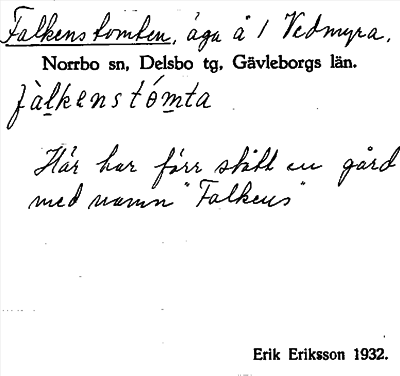 Falkenstomten, äga å 1 Vedmyra,
Norrbo sn, Delsbo tg, Gävleborgs län.
fàlkenstómta
Här har förr stått en gård
med namn "Falkens"
Erik Eriksson 1932.